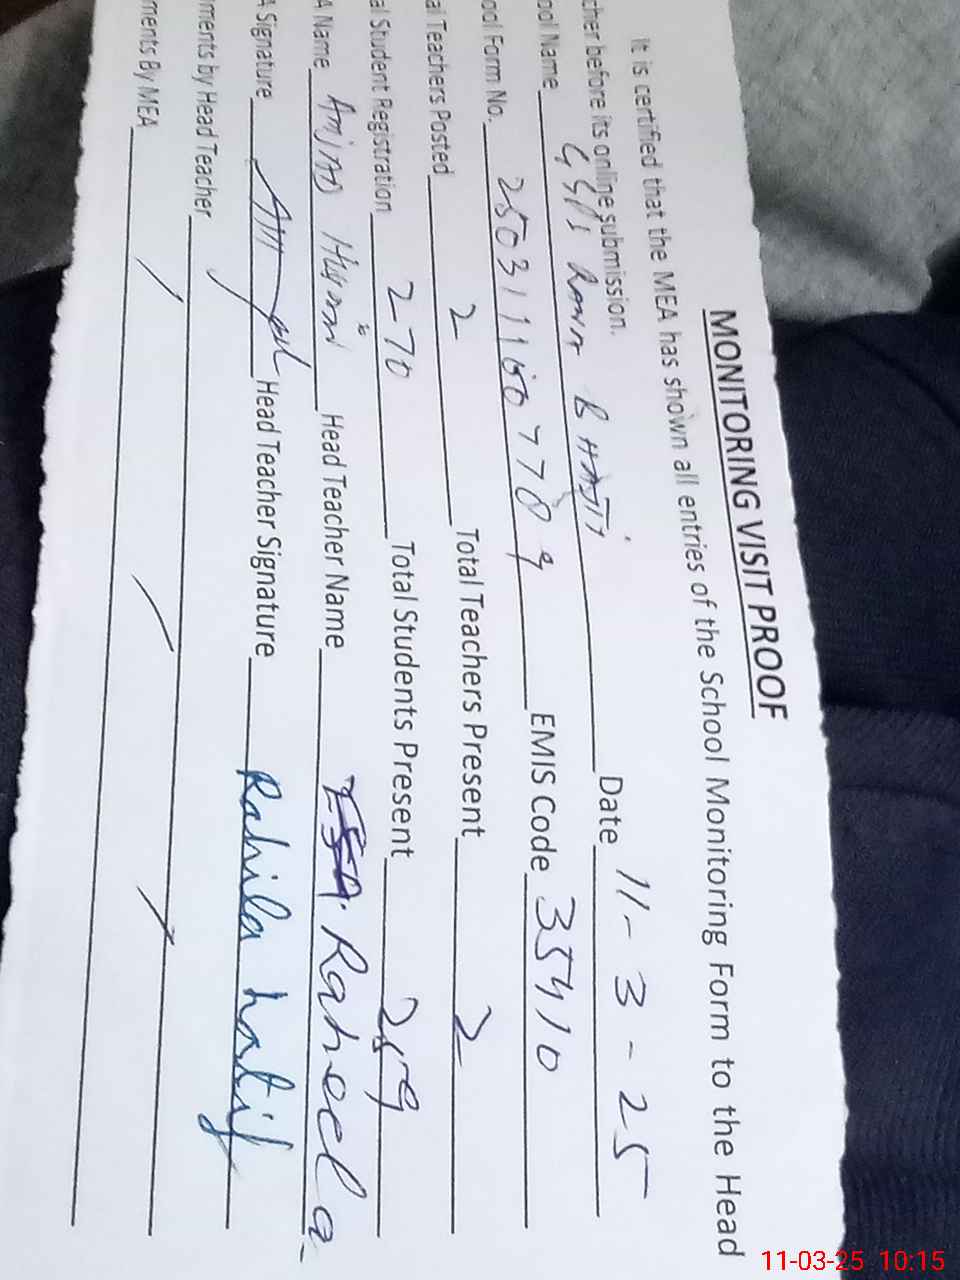 MONITORING VISIT PROOF
It is certified that the MEA has shown all entries of the School Monitoring Form to the Head
cher before its online submission.
ool Name BHATTI Date 11-3-25
ool Form No. EMIS Code 35410
al Teachers Posted 2 Total Teachers Present 2
al Student Registration 270 Total Students Present 259
A Name Head Teacher Name Raheela
A Signature Head Teacher Signature Rahila
ments by Head Teacher
ments By MEA
11-03-25 10:15